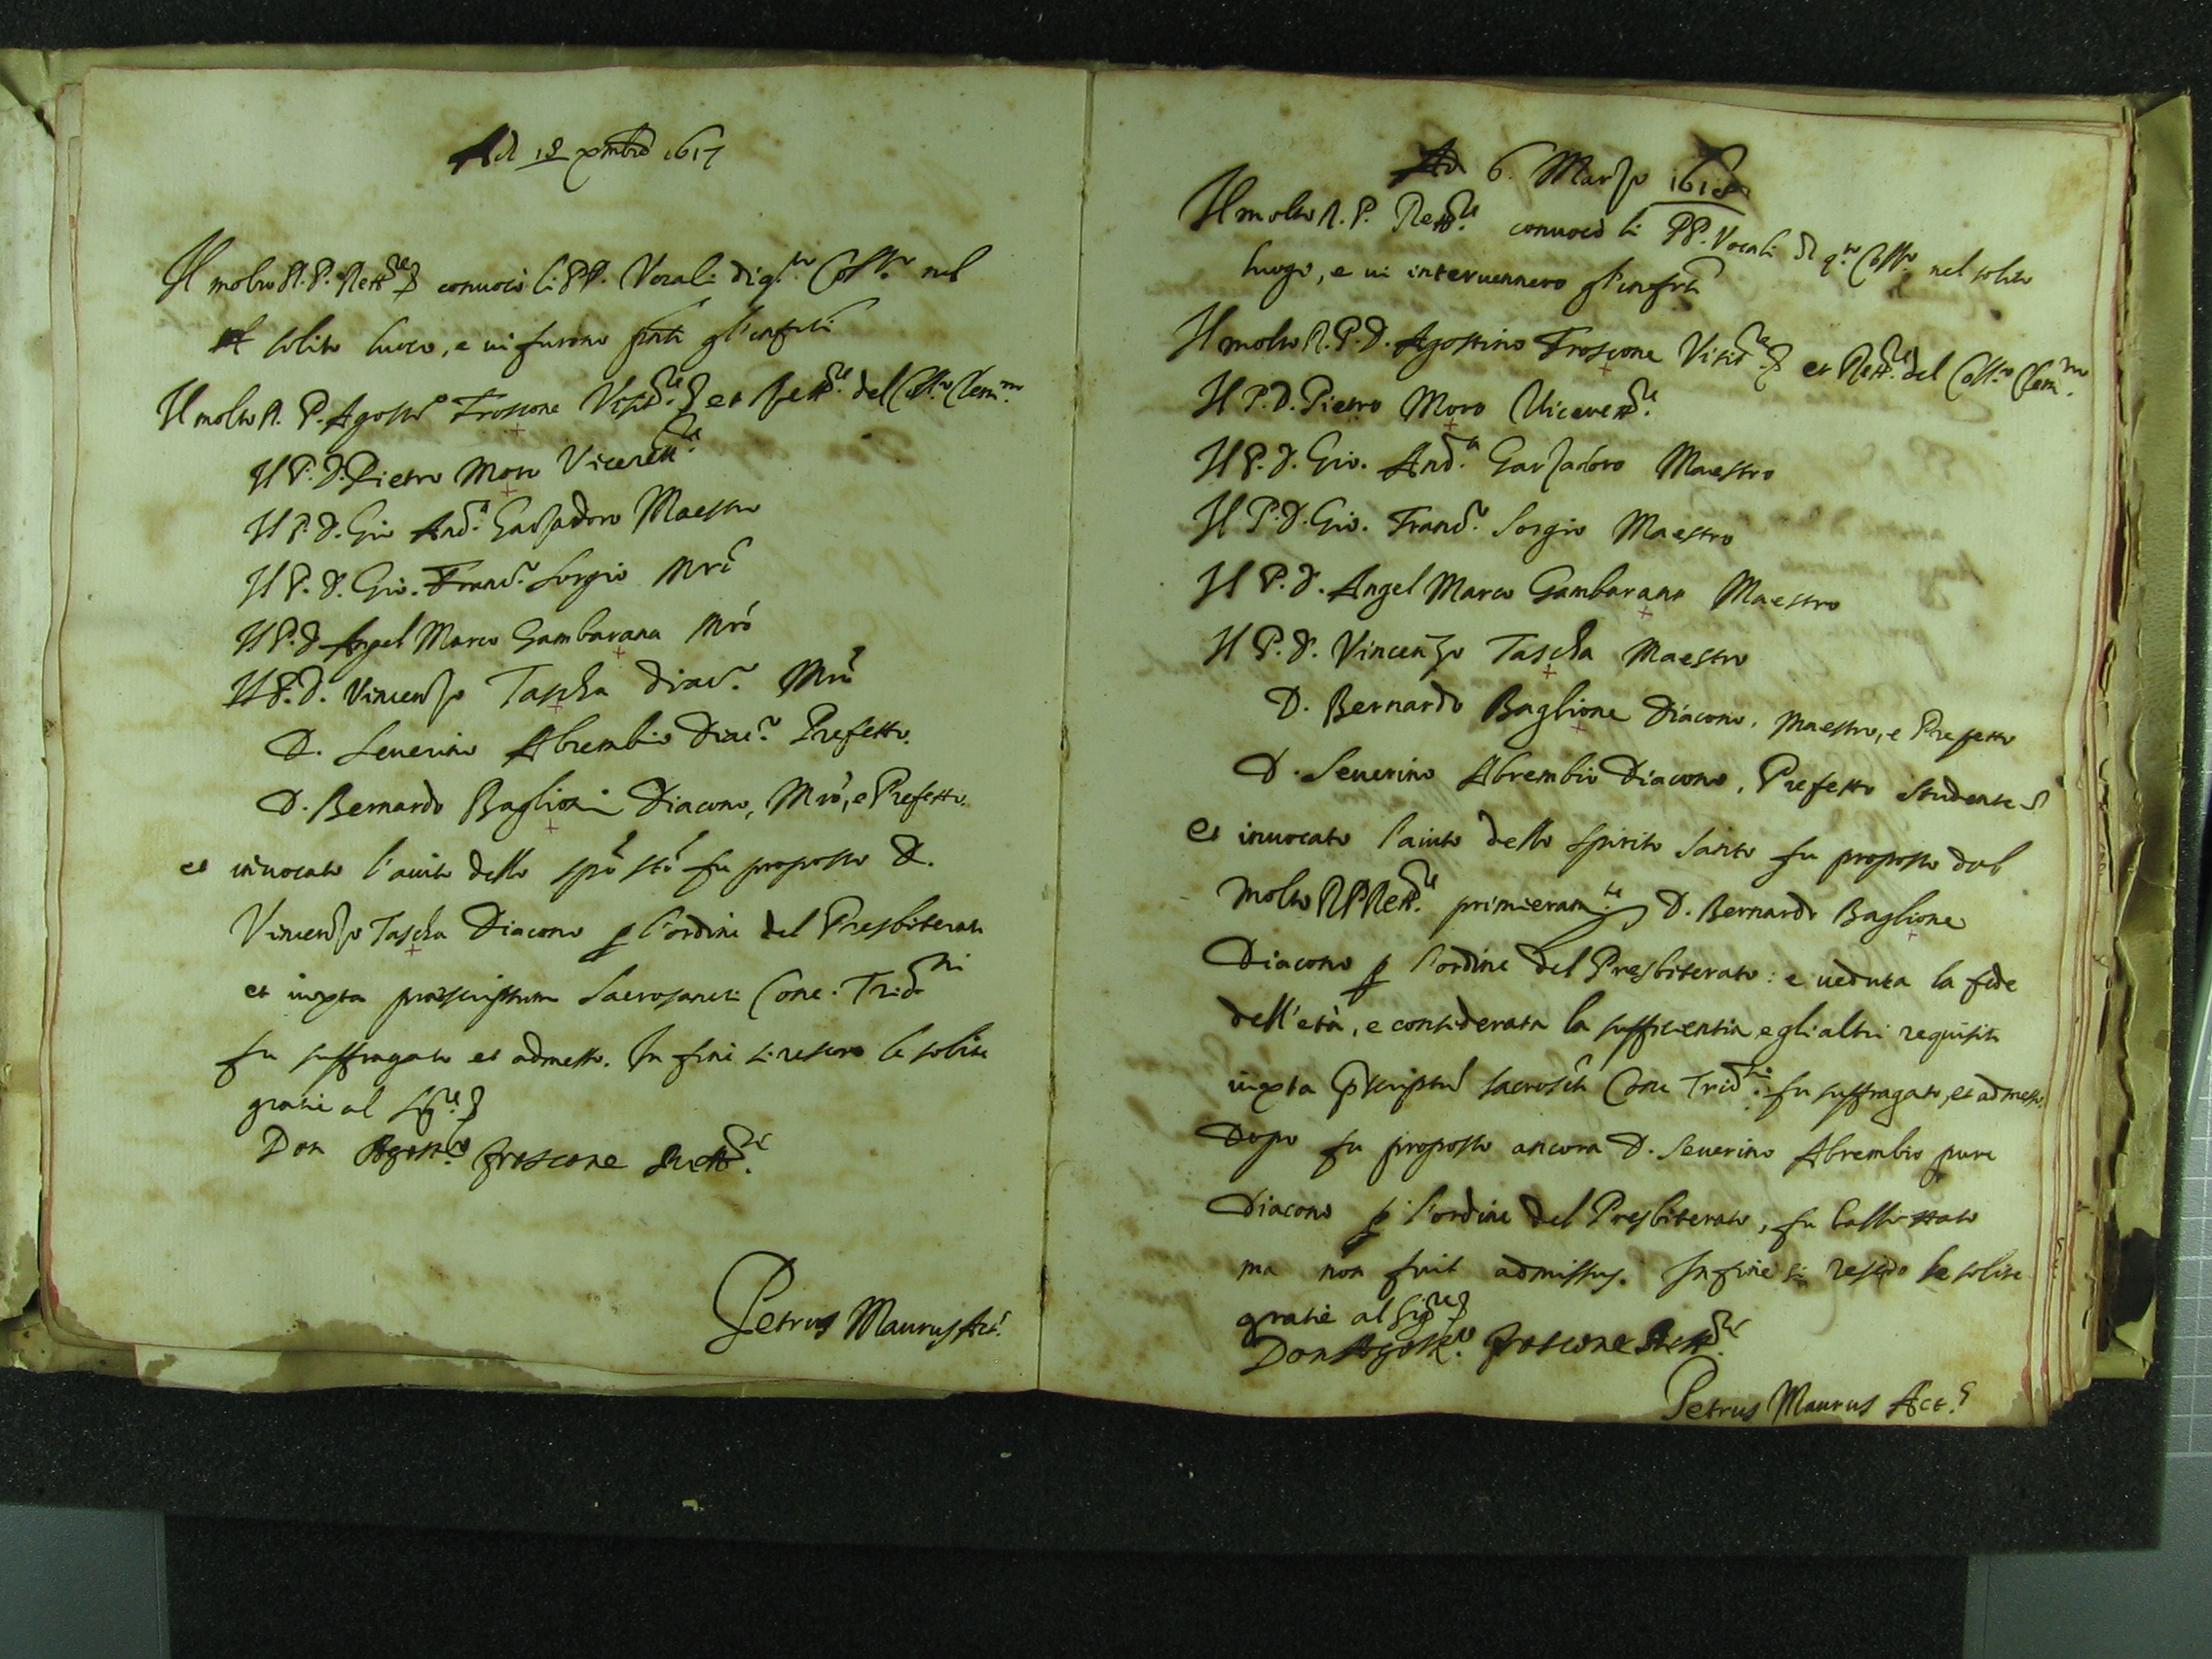 Adi 18 xmbre 1617
Il molto R. P. Rett.re convocò li PP. Vocali di q.to Coll.o nel
solito luoco, e vi furono pnti gl'infrti
Il molto R. P. Agost.o Froscone Visit.re et Rett.re del Coll.o Clem.no
Il P. D. Pietro Moro Vicerett.re
Il P. D. Gio And.a Garzadoro Maestro
Il P. D. Gio. Franc.o Sorgio Mro
Il P. D Angel Marco Gambarana Mró
Il P. D. Vincenzo Tascha Diac.o Mro
D. Severino Abrembio Diac.o Prefetto.
D. Bernardo Baglioni Diacono, Mró, e Prefetto.
et invocato l'aiuto dello spó stó fu proposto D.
Vincenzo Tascha Diacono p l'ordine del Presbiterato
et iuxta praescriptum Sacrosancti Conc. Trid.ni
fu suffragato et admesso. In fine si resero le solite
gratie al Sig.re
Don Agost.o froscone Rett.re
Petrus Maurus Act.s
Adi 6. Marzo 1618
Il molto R. P. Rett.re convocò li PP. Vocali di q.to Coll.o nel solito
luogo, e vi intervennero gl'infrti
Il molto R. P. D. Agostino Froscone Visit.re et Rett.re del Coll.o Clem.no
Il P. D. Pietro Moro Vicerett.re
Il P. D. Gio. And.a Garzadoro Maestro
Il P. D. Gio. Franc.o Sorgio Maestro
Il P. D. Angel Marco Gambarana Maestro
Il P. D. Vincenzo Tascha Maestro
D. Bernardo Baglione Diacono, Maestro, e Prefetto
D. Severino Abrembio Diacono, Prefetto studente
Et invocato l'aiuto dello Spirito Santo fu proposto dal
Molto R P Rett.re primieram.te D. Bernardo Baglione
Diacono p l'ordine del Presbiterato: e veduta la fede
dell'età, e considerata la sufficientia e gli altri requisiti
iuxta pscriptu sacrosti Conc Trid.ni fu suffragato, et admesso.
Dopo fu proposto ancora D. Severino Abrembio pure
Diacono p l'ordine del Presbiterato, fu ballottato
ma non fuit admissus. In fine si resero le solite
gratie al Sig.re
Don Agost.o froscone Rett.re
Petrus Maurus Act.s